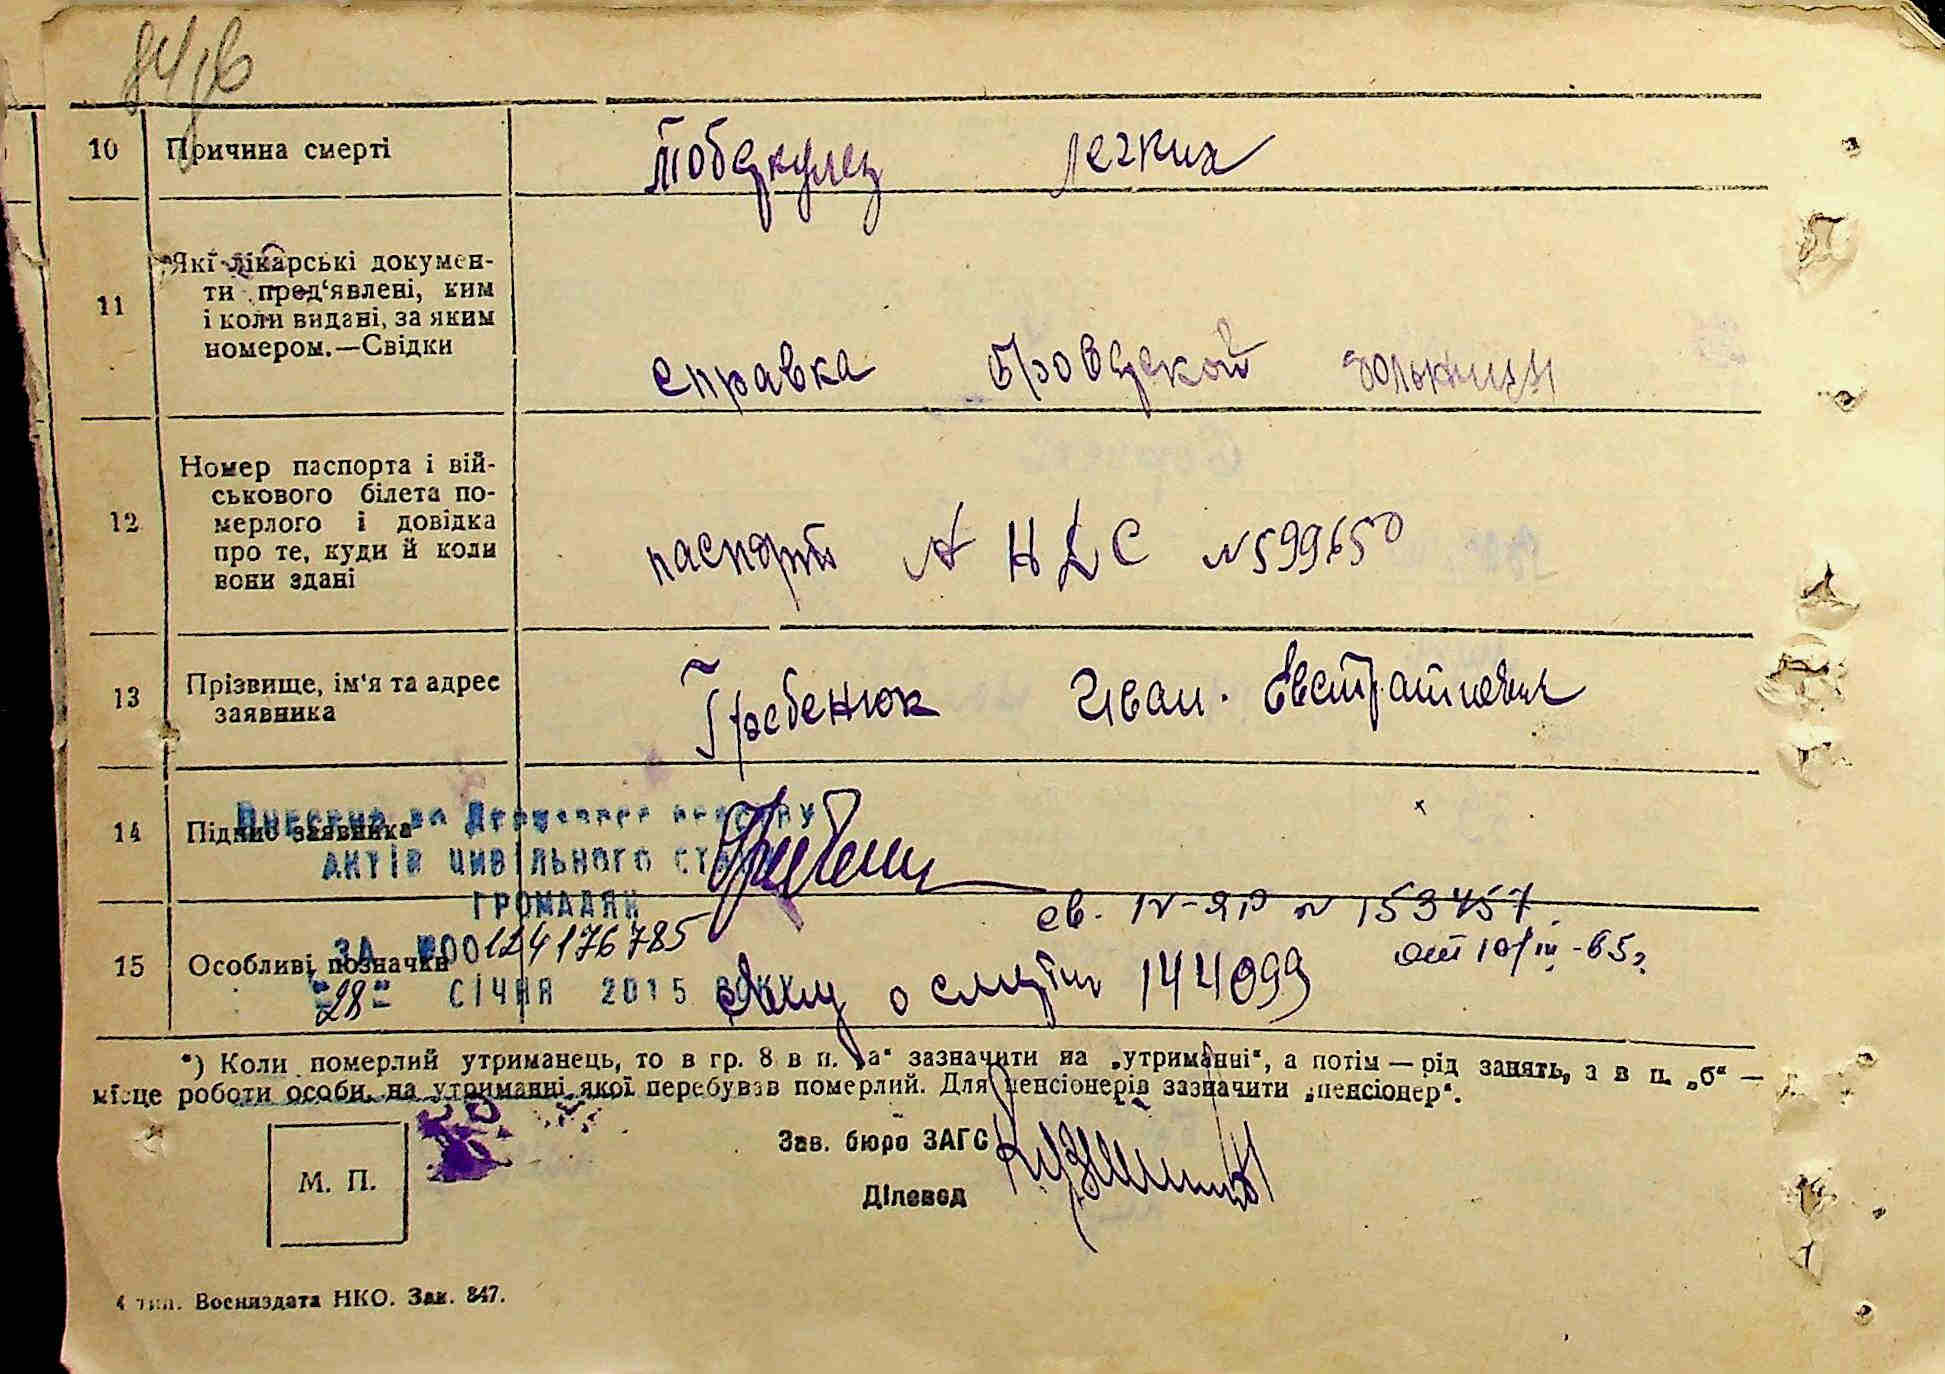 10 Причина смерті
Тоберкулез легких
11 Які лікарські докумен-
ти пред‘явлені, ким
і коли видані, за яким
номером.—Свідки
справка больницы
12 Номер паспорта і вій-
ськового білета по-
мерлого і довідка
про те, куди й коли
вони здані
паспорт N 599650
13 Прізвище, ім‘я та адрес
заявника
Гребенюк Иван Евстратиевич
14 Підпис заявника
Внесено до Державного реєстру
актів цивільного стану
громадян
св. IV-ЯР N 153457
от 10/III-65г.
15 Особливі позначки
ЗА №00124176785
"28" СІЧНЯ 2015 РОКУ
о смерти 144099
*) Коли померлий утриманець, то в гр. 8 в п. „а“ зазначити на „утриманні“, а потім — рід занять, а в п. „б“ —
місце роботи особи, на утриманні якої перебував померлий. Для пенсіонерів зазначити „пенсіонер“.
М. П.
Зав. бюро ЗАГС
Діловод
4 тип. Воениздата НКО. Зак. 847.